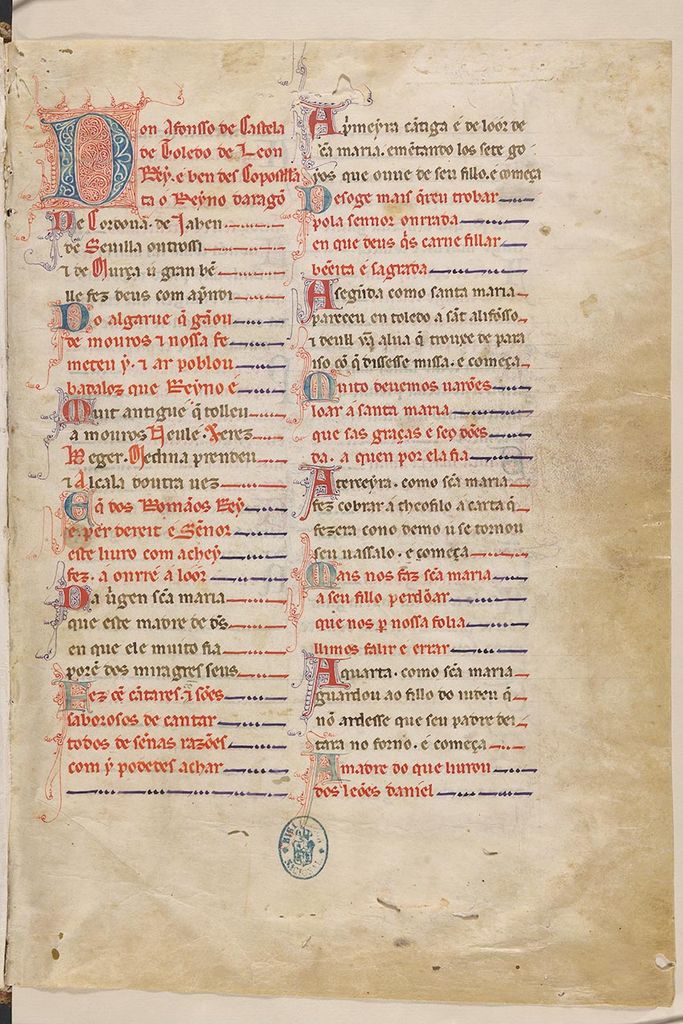 Don Afonsso de Castela
de Toledo de Leon
Rey. e ben des Conpostela
ta o Reyno daragõ
De Cordoua. de Jahen
de Seuilla outrossi
⁊ de Murça u gran bẽ
lle fez deus com ap̃ndi
Do algarue q̃ gãou
de mouros ⁊ nossa fe
meteu y. ⁊ ar poblou
badalloz que Reyno é
Muit antigue q̃ tolleu
a mouros Neule. Xerez
Beger. Medina prendeu
⁊ Alcala doutra uez
E q̃ dos Romãos Rey
é. per dereit e Sẽnor
este liuro com achey
fez. á onrr é á loor
Da uirgen scã maria
que este madre de ds̃
en que ele muito fia
porẽ dos miragres seus
Fez cẽ cãtares. ⁊ sões
saborosos de cantar
todos de sẽnas razões
com y podedes achar
A p̃meyra cãtiga é de loor de
sc̃a maria. emẽtando los sete go
yos que ouue de seu fillo. e comeca
Desoge mais q̃reu trobar
pola sennor onrrada
en que deus q̃s carne fillar
bẽeita e sagrada
A segũda como santa maria
pareceu en toledo a sãt alifõsso
⁊ deull ũa alua q̃ trouxe de para
iso cõ q̃ dissesse missa. e começa
Muito deuemos uarões
loar a santa maria
que sas graças e seos dões
da. a quen por ela fia
A terceyra. como scã maria
fez cobrar a theofilo a carta q̃
fezera cono demo u se tornou
seu uassalo. e começa
Mais nos faz scã maria
a seu fillo perdõar
que nos p nossa folia
llimos falir e errar
A quarta. como scã maria
guardou ao fillo do iudeu q̃
nõ ardesse que seu padre dei
tara no forno. e começa
A madre do que liurou
dos leões daniel
BIBLIOTECA NACIONAL